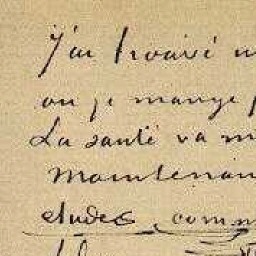 J'ai trouvé
ou je mange
La santé va m
Maintenan
etudes comm